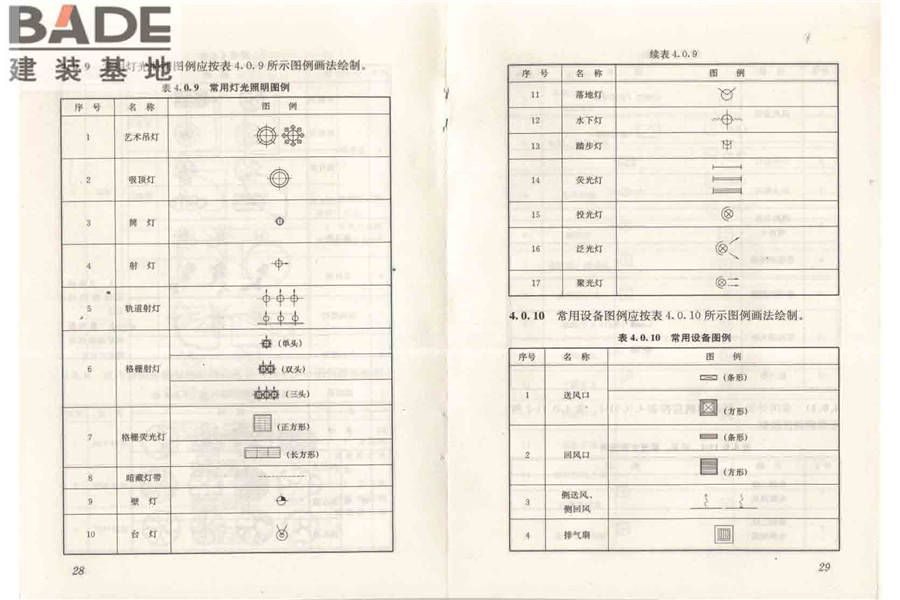 BADE
建装基地
9 灯光 图例应按表 4.0.9 所示图例画法绘制。
表 4.0.9 常用灯光照明图例
序 号 名 称 图 例
1 艺术吊灯
2 吸顶灯
3 筒 灯
4 射 灯
5 轨道射灯
6 格栅射灯
(单头)
(双头)
(三头)
7 格栅荧光灯
(正方形)
(长方形)
8 暗藏灯带
9 壁 灯
10 台 灯
28
续表 4.0.9
序 号 名 称 图 例
11 落地灯
12 水下灯
13 踏步灯
14 荧光灯
15 投光灯
16 泛光灯
17 聚光灯
4.0.10 常用设备图例应按表 4.0.10 所示图例画法绘制。
表 4.0.10 常用设备图例
序号 名 称 图 例
1 送风口
(条形)
(方形)
2 回风口
(条形)
(方形)
3 侧送风、
侧回风
4 排气扇
29